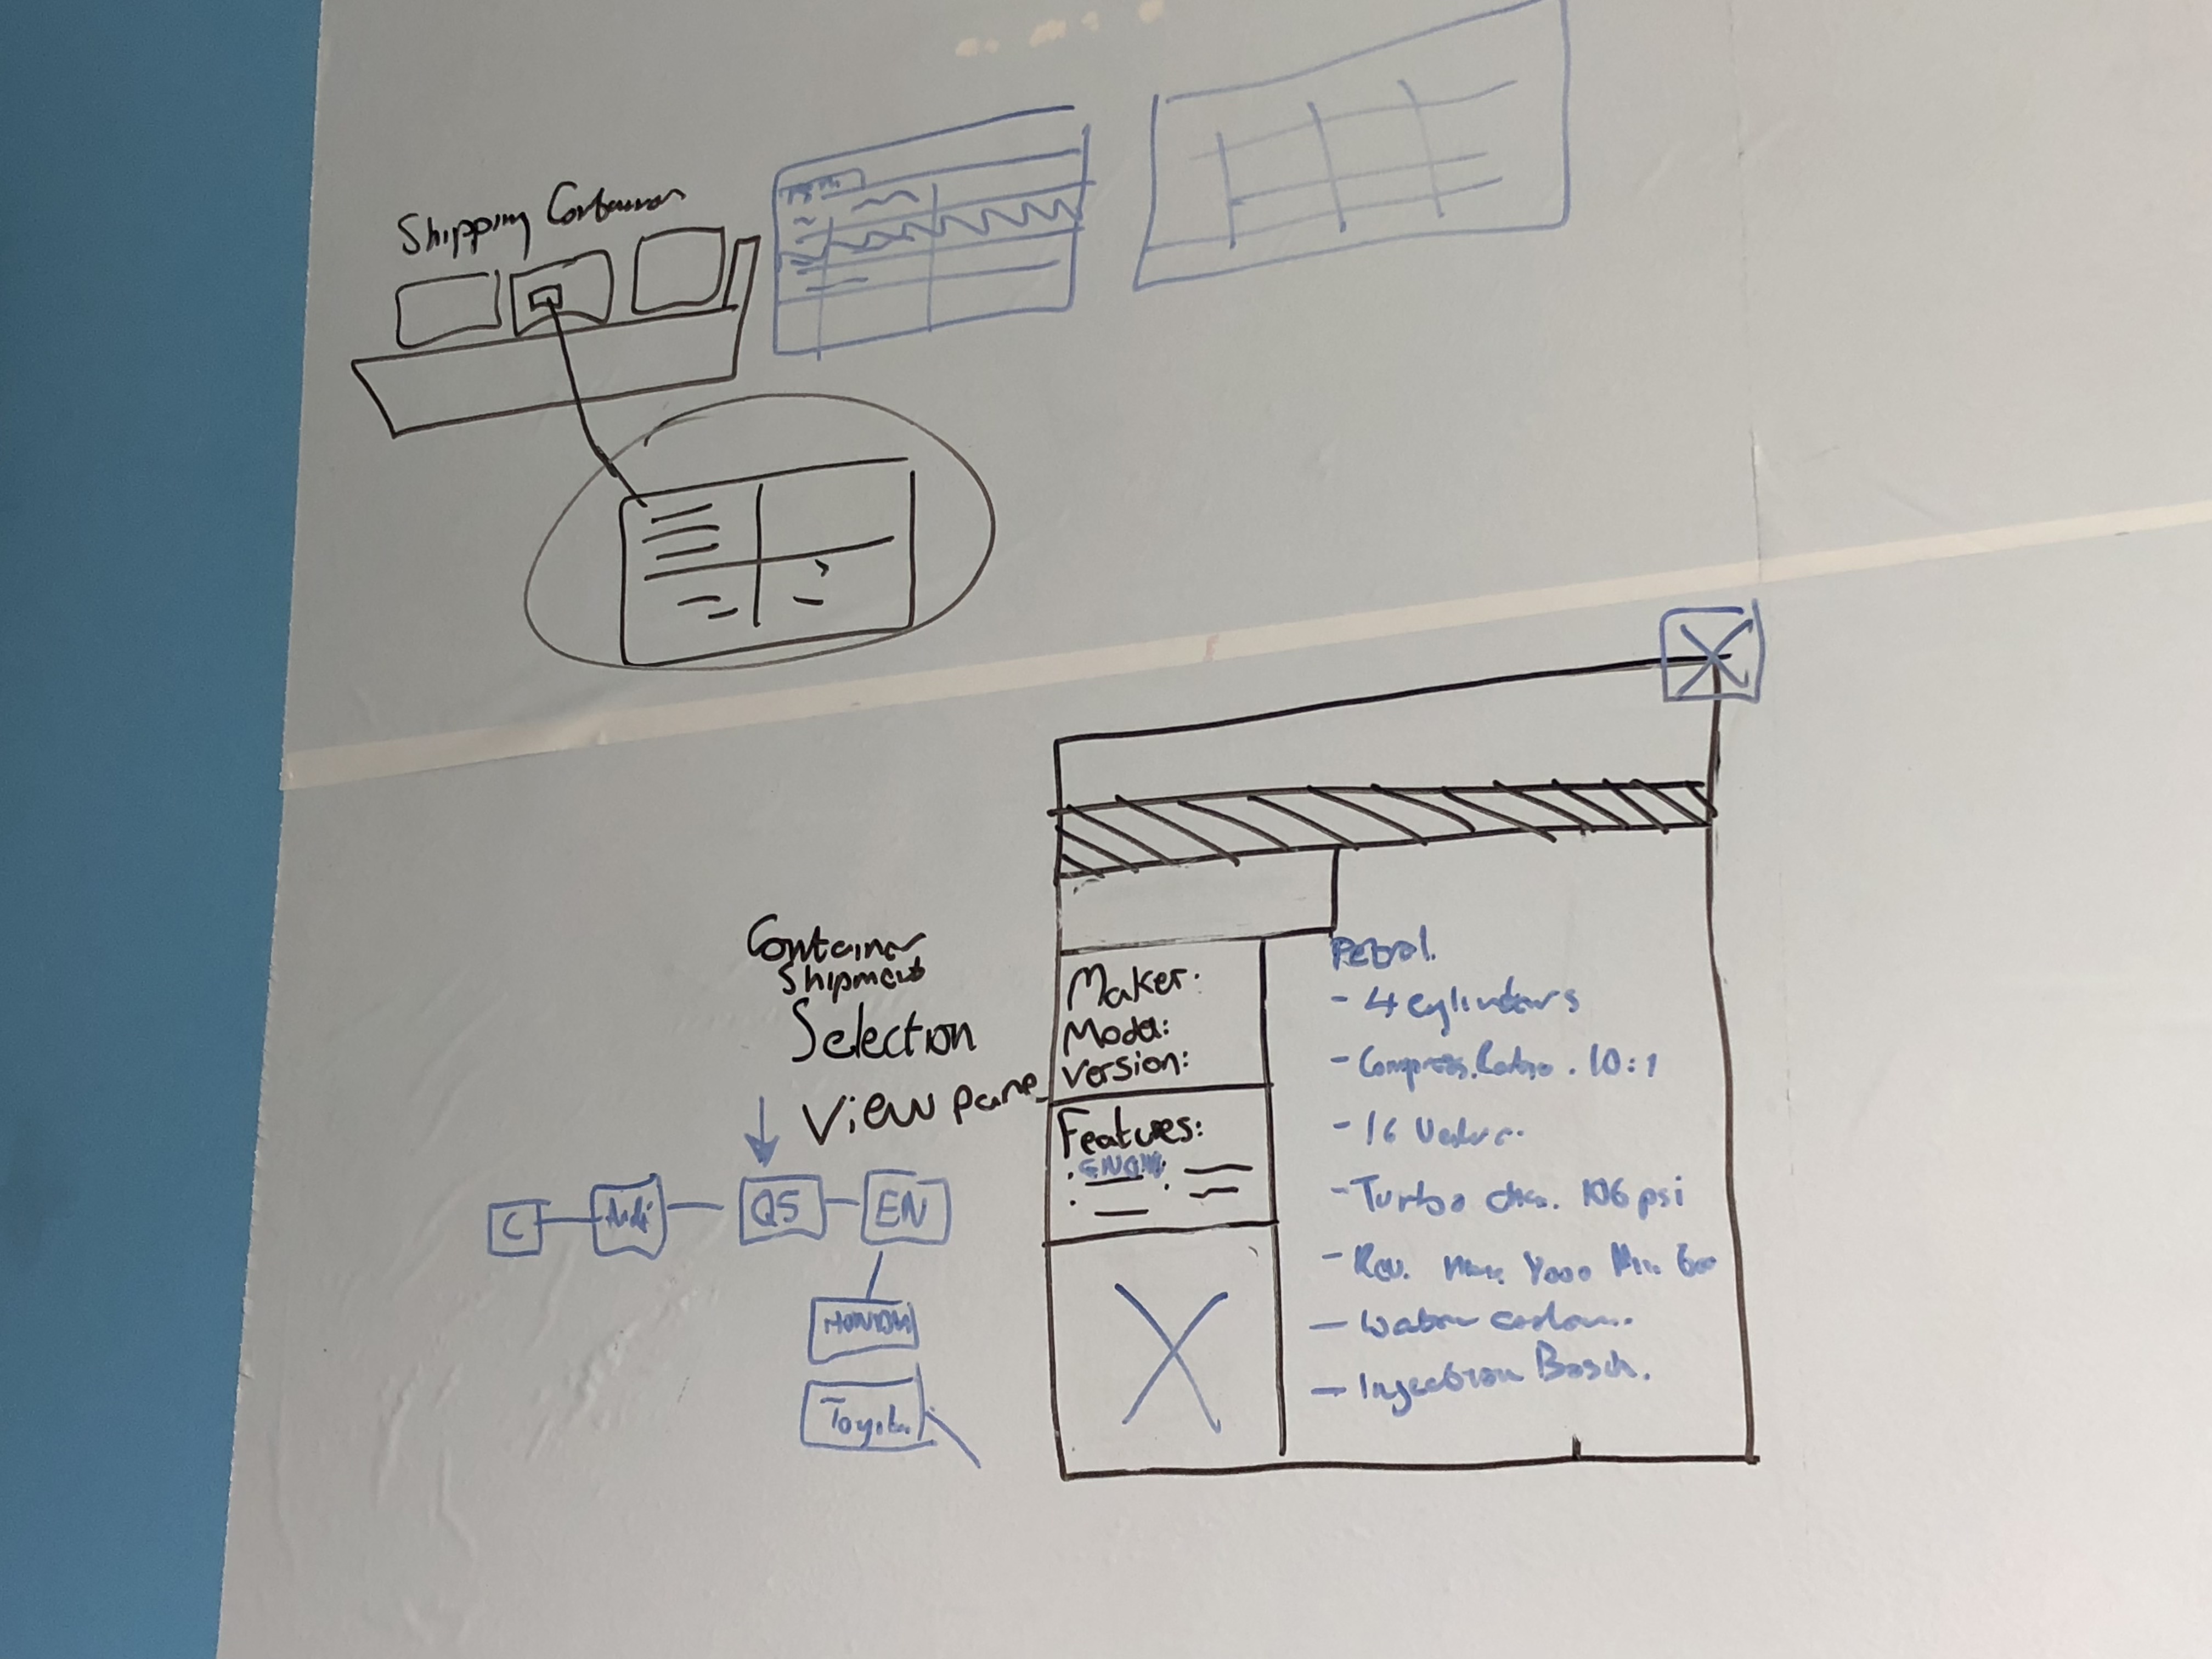 Shipping Container
Container
Shipment
Selection
View pane
C
Audi
Q5
EN
HONDA
Toyota
Maker:
Model:
Version:
Features:
Petrol.
- 4 cylinders
- Compress. Ratio. 10:1
- 16 Valve.
- Turbo 106 psi
- Rev. Max Min
- Water
- Injection Bosch.